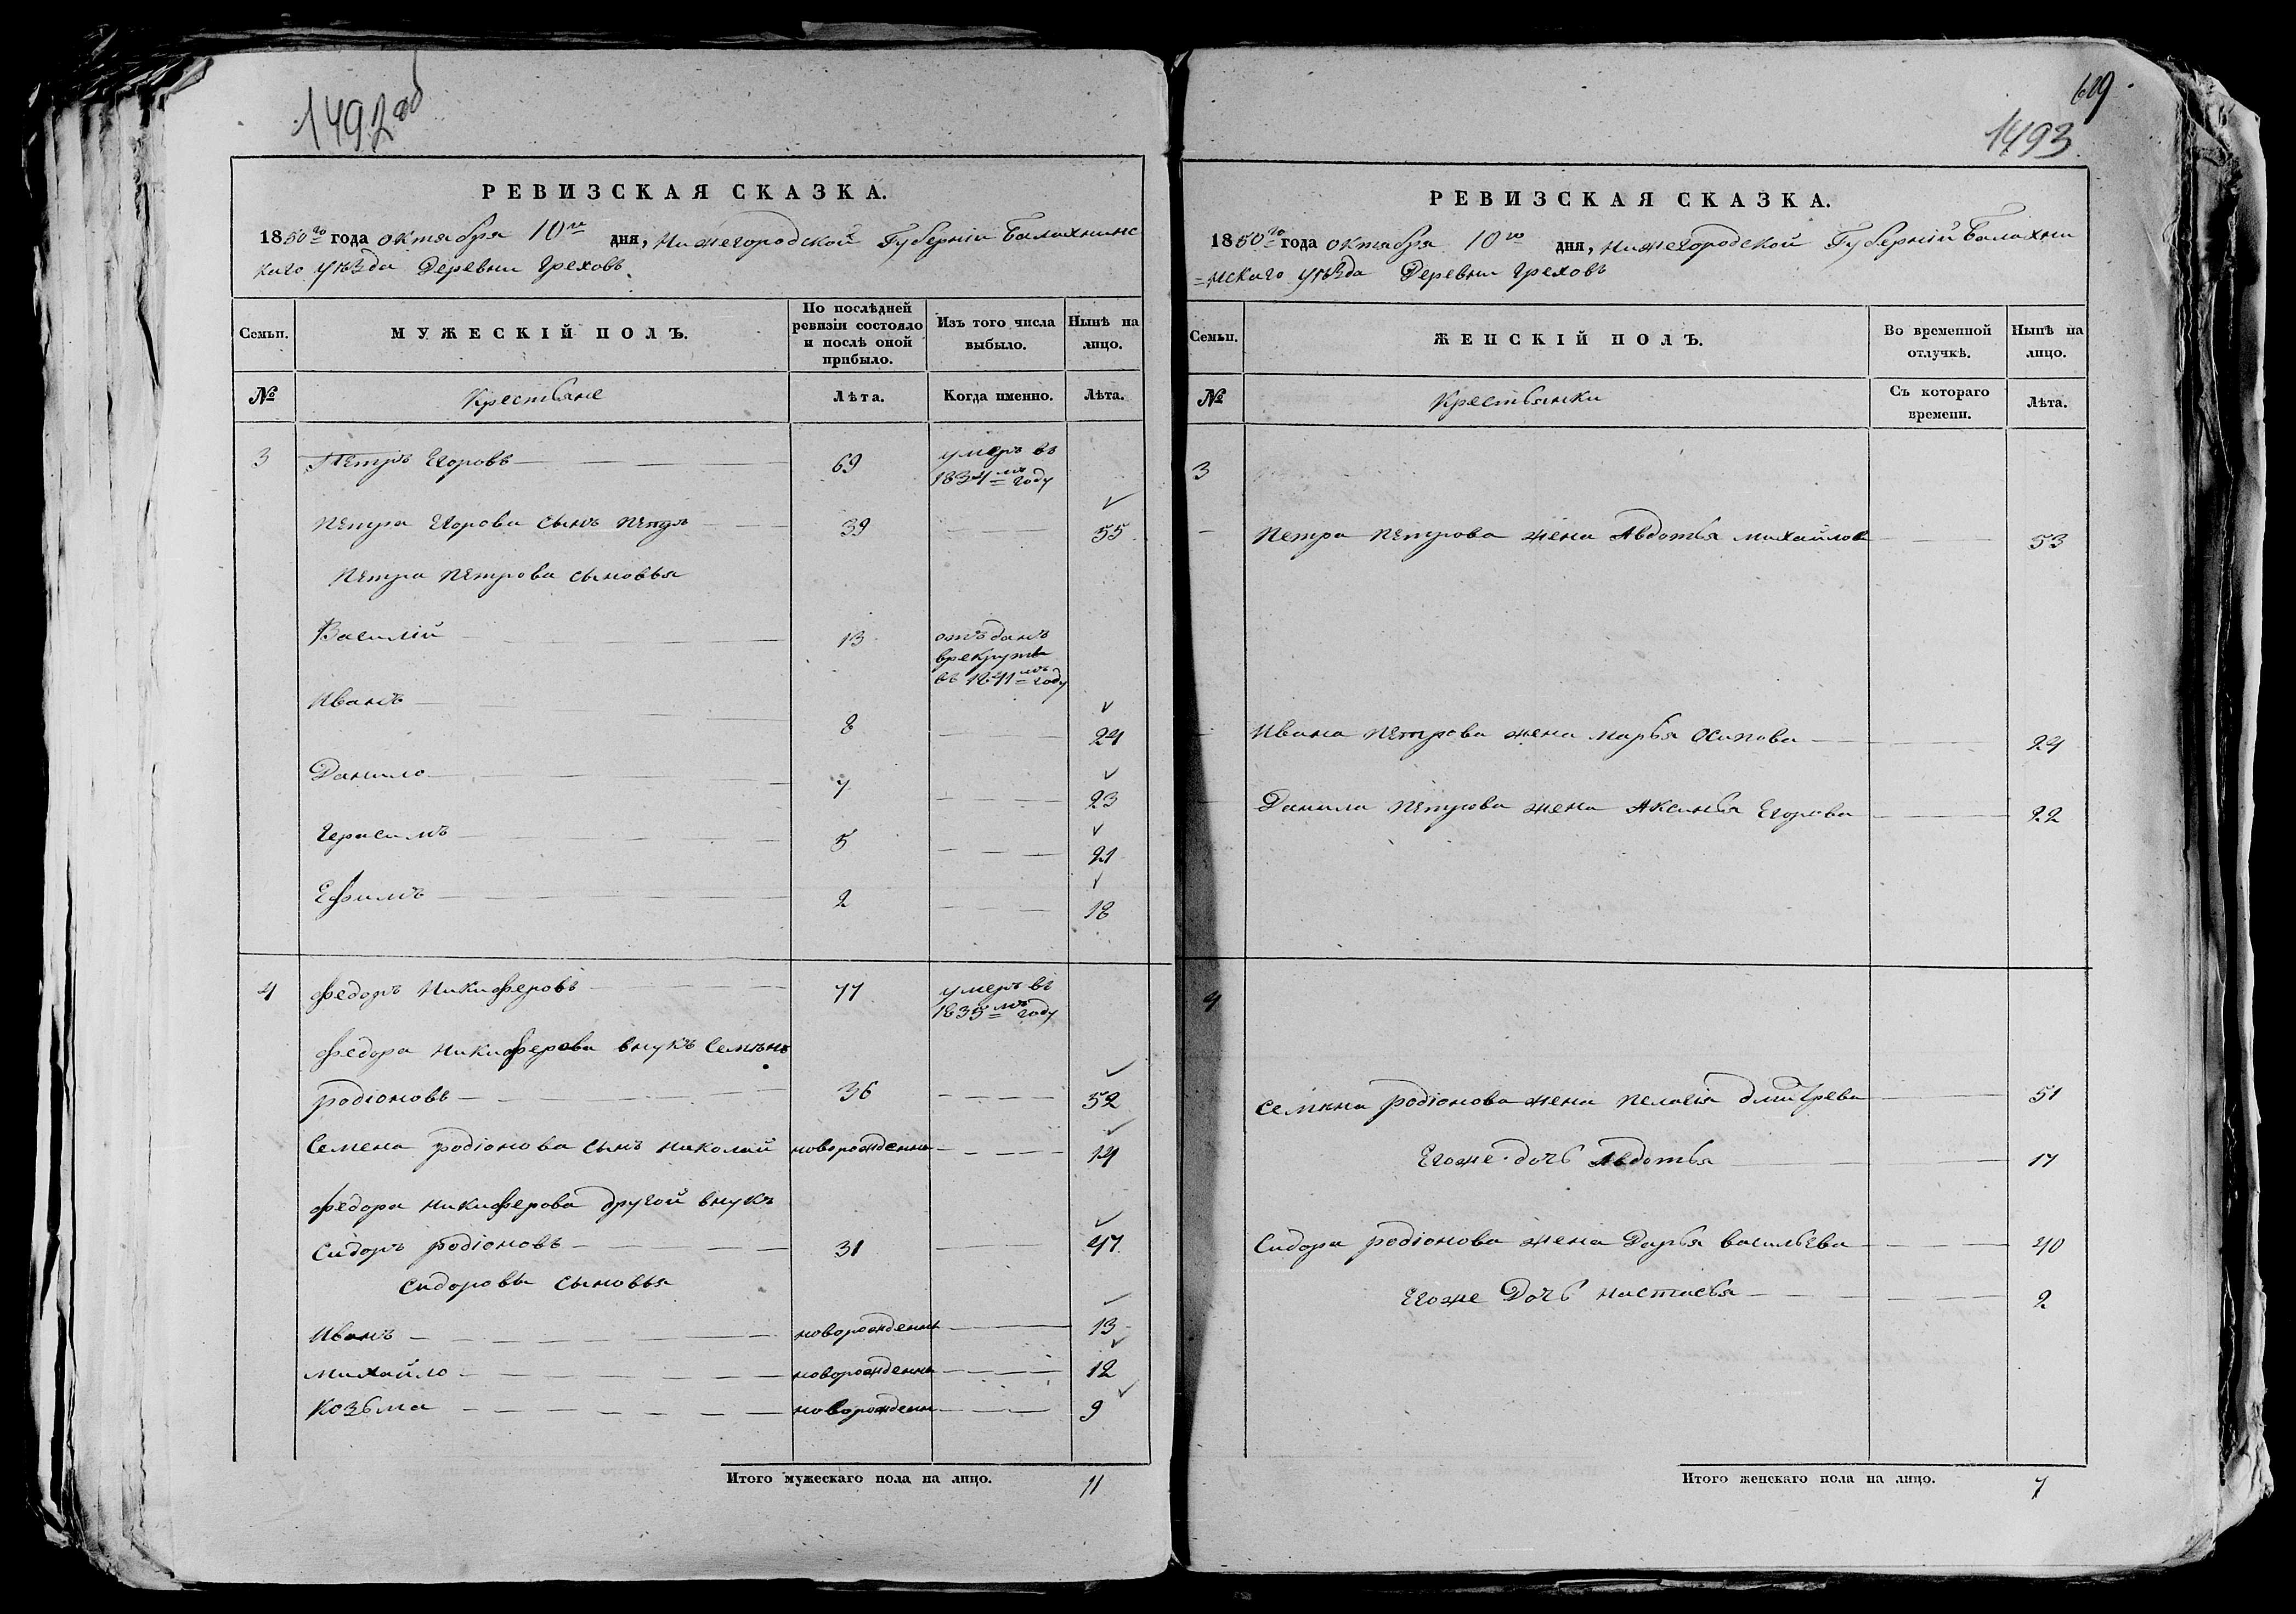 1492 об
РЕВИЗСКАЯ СКАЗКА.
1850го года октября 10го дня, Нижегородской Губерніи Балахнинс
каго уѣзда Деревни Греховъ
Семьи. МУЖЕСКІЙ ПОЛЪ. По послѣдней ревизіи состояло и послѣ оной прибыло. Изъ того числа выбыло. Нынѣ на лицо.
№ Крестьяне Лѣта. Когда именно. Лѣта.
3 Петръ Егоровъ 69 умеръ въ
1834мъ году
Петра Егорова сынъ Петръ 39 55
Петра Петрова сыновья
Василій 13 отъданъ
врекруты
въ 1841мъ году
Иванъ 8 24
Данило 7 23
Герасимъ 5 21
Ефимъ 2 18
4 Федоръ Никиферовъ 77 умеръ въ
1835мъ году
Федора Никиферова внукъ Семенъ
родіоновъ 36 52
Семена родіонова сынъ Николай новорожденны 14
Федора Никиферова другой внукъ
Сидоръ родіоновъ 31 47
Сидоровы сыновья
Иванъ новорожденны 13
Михайло новорожденны 12
Козьма новорожденны 9
Итого мужескаго пола на лицо. 11
619
1493
РЕВИЗСКАЯ СКАЗКА.
1850го года октября 10го дня, Нижегородской Губерній Балахни
=нскаго уѣзда Деревни Греховъ
Семьи. ЖЕНСКІЙ ПОЛЪ. Во временной отлучкѣ. Нынѣ на лицо.
№ Крестьянки Съ котораго времени. Лѣта.
3
Петра Петрова жена Авдотья михайлов 53
Ивана Петрова жена марья Осипова 24
Данила Петрова жена Аксинья Егорова 22
4
Семена родіонова жена Пелагія дмитрева 51
Егоже дочь Авдотья 17
Сидора родіонова жена Дарья васильева 40
Егоже Дочь настасья 2
Итого женскаго пола на лицо. 7